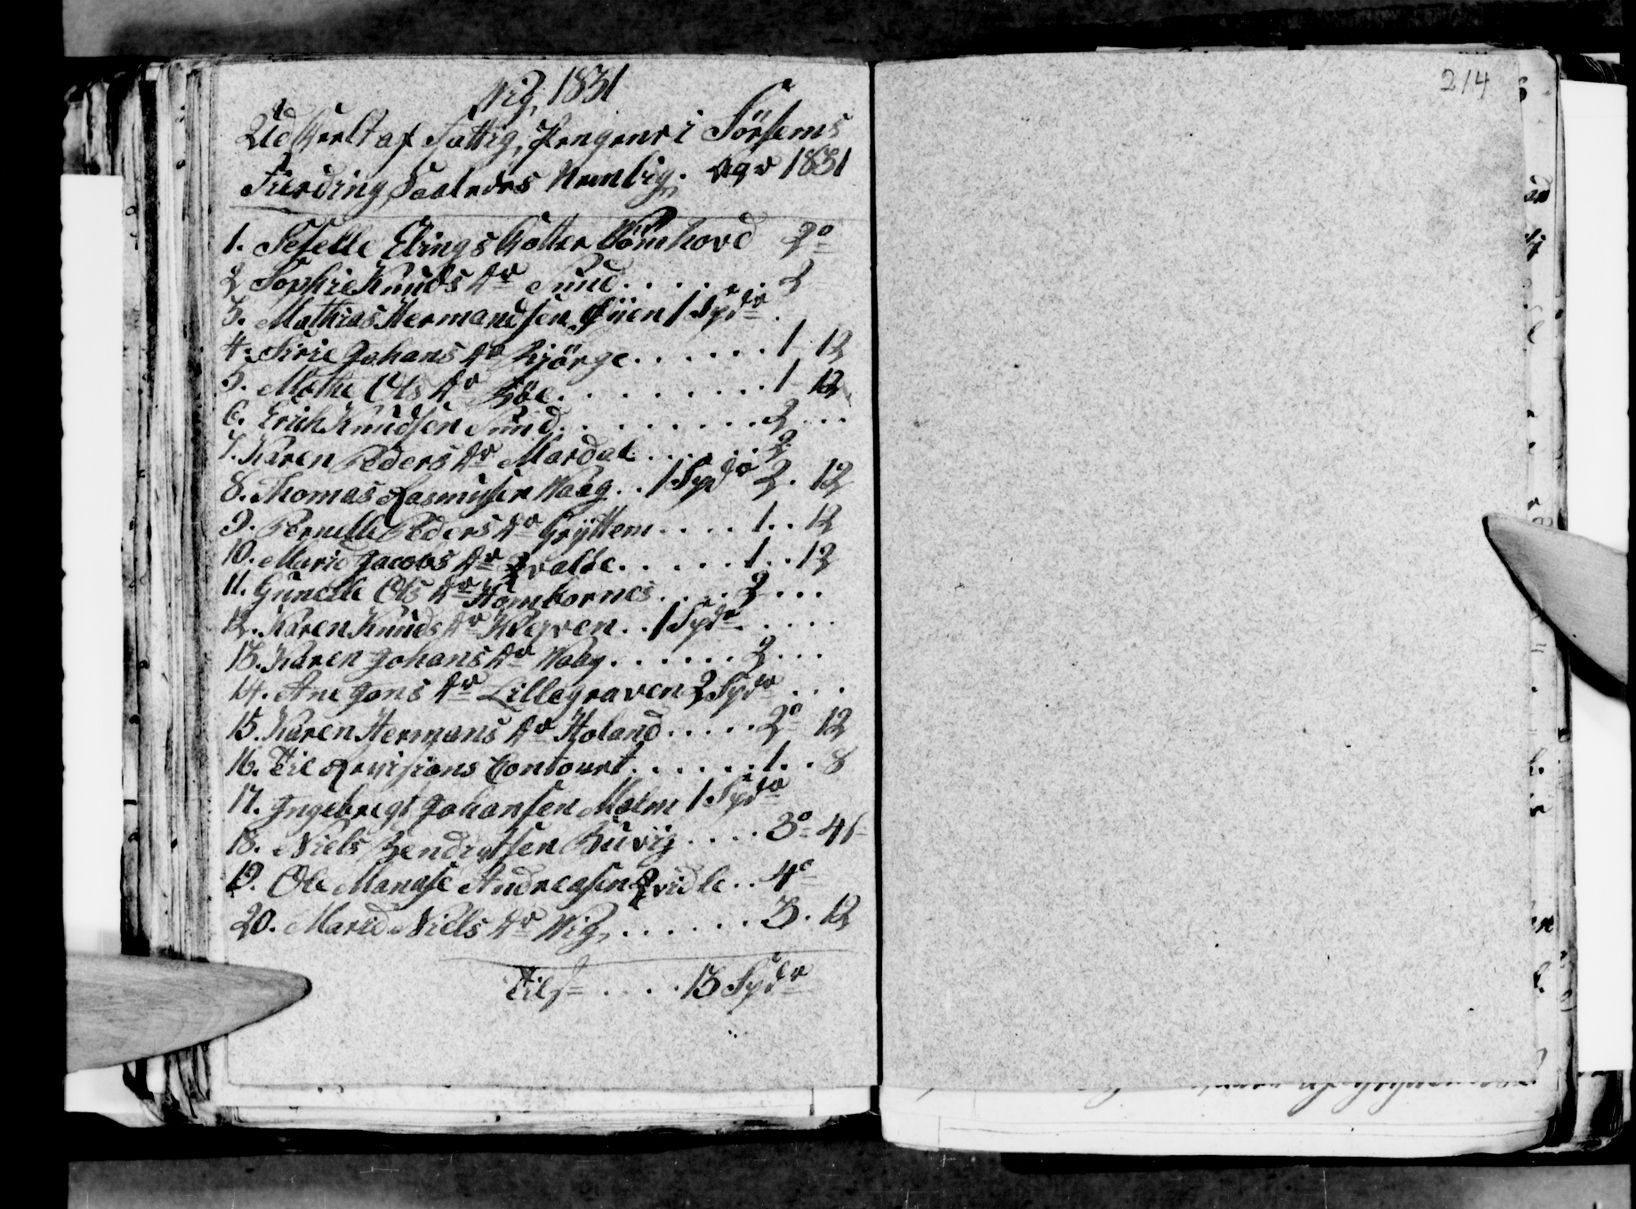 Vig, 1831
Uddeelt af Fattig, Pengene i Försems
Fierding Saaledes Nemlig. Aar 1831
1. Selelle Elings Datter Sömhovd 2o
2 Sophie Knuds Dr Sund . . . . . . 2
3. Mathias Hermandsen Öüen 1 Spdr .
4. Sirie Johans Dr Bjørge . . . . . . 1 12
5. Mathe Ols Dr . . . . . . . . 1 12
6. Erich Knudsen Sund . . . . . . . . . 2 . . .
7. Karen Peders Dr Mardal . . . . . . 2
8. Thomas Rasmussen Waag . . 1 Spdr 2 . 12
9. Pernelle Peders Dr Gryttem . . . . 1 . . 12
10. Marid Jacobs Dr Qvalde . . . . . 1 . . 12
11. Gunelle Ols Dr Hombornes . . . . 2 . . .
12. Karen Knuds Dr Klegven . . 1 Spdr . . . .
13. Karen Johans Dr Waag . . . . . . 2 . . .
14. Ane Jons Dr Lillegraven 2 Spdr . . .
15. Karen Hermans Dr Holand . . . . . 2o 12
16. Til Revisions Contouret . . . . . . 1 . . 8
17. Ingebregt Johansen Malm 1 Spdr
18. Niels Hendrichsen Buvig . . . . 3o
19. Ole Manase Andreasen Qvidle . . 4o
20. Marid Niels Dr Vig, . . . . . . 3 . 12
Tils . . . . 13 Spdr
214